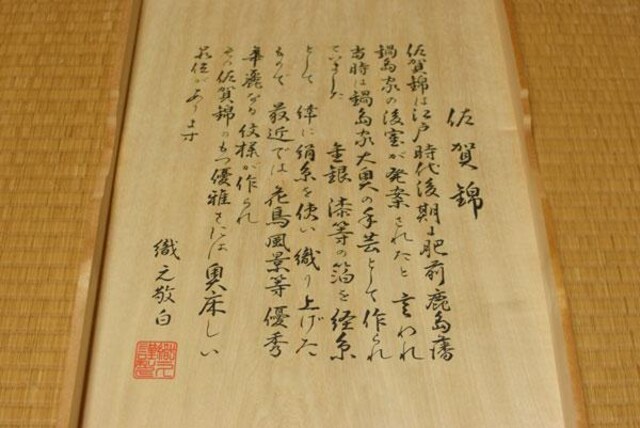 佐賀錦
佐賀錦は江戸時代後期に肥前鹿島藩
鍋島家の後室が発案されたと言われ
当時は鍋島家大奥の手芸として作られ
ていました
金銀漆等の箔を経糸
として 緯に絹糸を使い織り上げた
もので 最近では花鳥風景等優秀
華麗なる紋様が作られ
その佐賀錦のもつ優雅さには奥床しい
気位があります
織元敬白